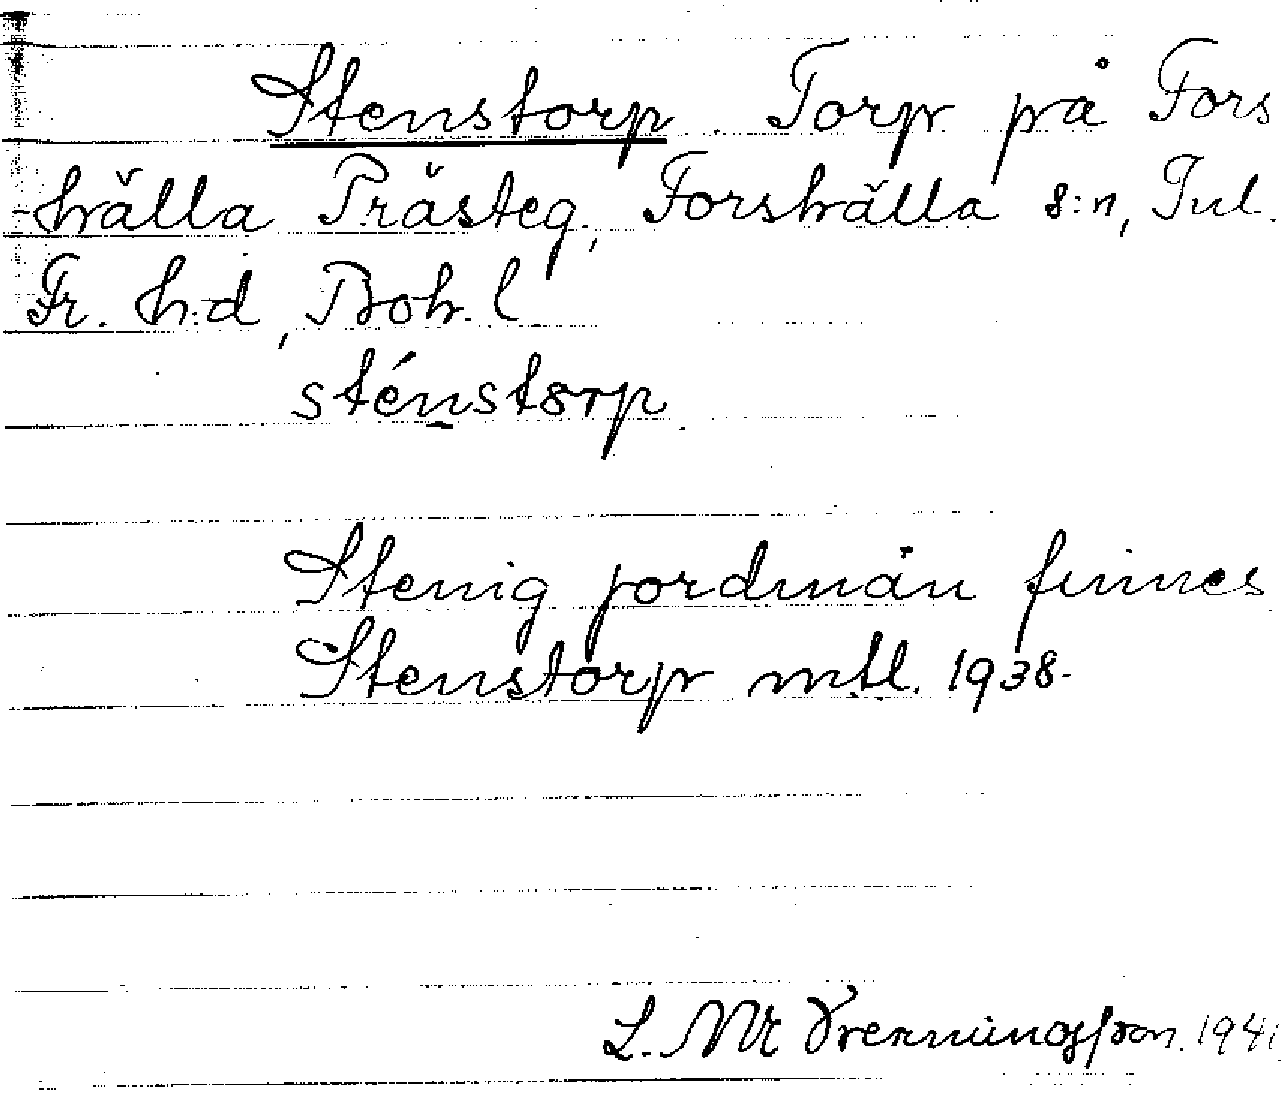 Stenstorp. Torp på Fors
hälla Prästeg., Forshälla s:n, Inl.
Fr. h:d, Boh. l
sténstorp.
Stenig jordmån finnes
Stenstorp mtl. 1938.
L. 1941